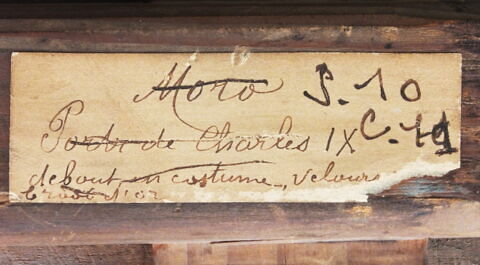 Moro P. 10
Portr de Charles IX C. 11
debout en costume, velours
brodé d'or